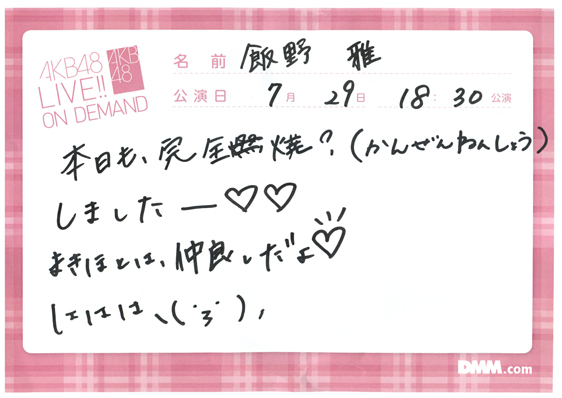 AKB48
LIVE!!
ON DEMAND
AKB
48
名前 飯野 雅
公演日 7月 29日 18:30公演
本日も、完全燃焼?(かんぜんねんしょう)
しましたー♡♡
まきほとは、仲良しだよ♡
にははは、(˙3˙),
DMM.com